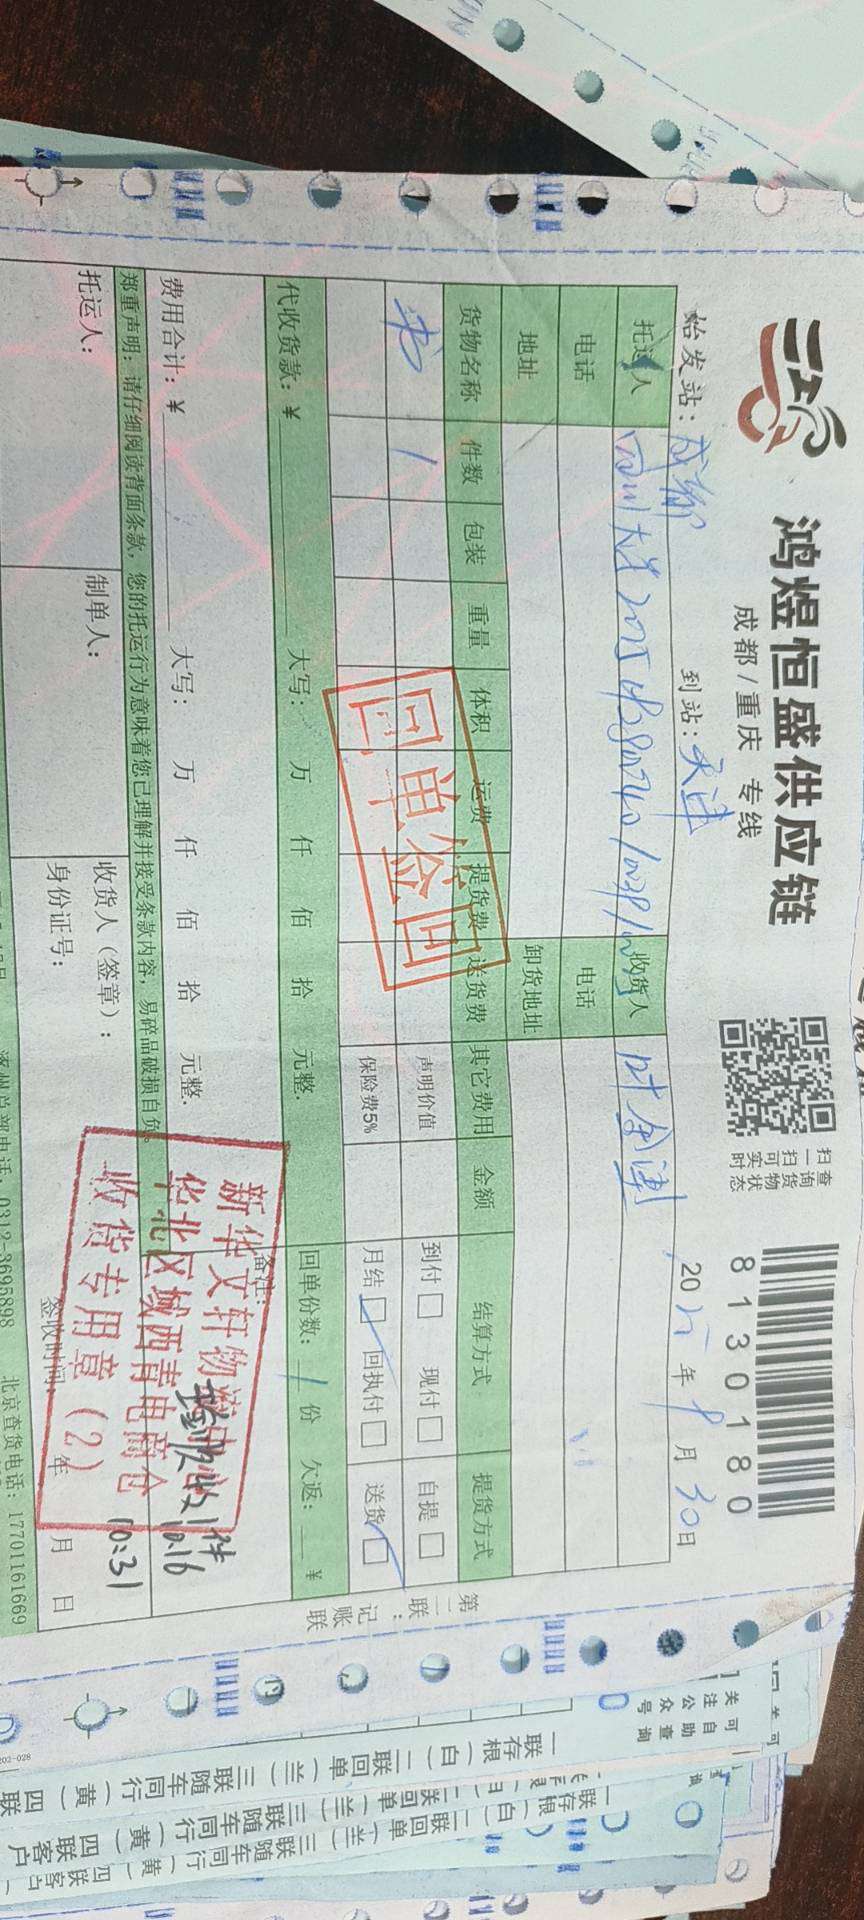 鸿煜恒盛供应链
成都/重庆 专线
扫一扫可实时
查询货物状态
8130180
始发站: 成都 到站: 天津 2025年9月30日
托运人 收货人 叶金津
电话 电话
地址 卸货地址
货物名称 件数 包装 重量 体积 运费 提货费 送货费 其它费用 金额 结算方式 提货方式
书 1 声明价值 到付 现付 自提
保险费5% 月结 回执付 送货
回单签回
代收货款: ¥ 大写: 万 仟 佰 拾 元整. 回单份数: 1 份 欠返: ¥
费用合计: ¥ 大写: 万 仟 佰 拾 元整. 备注:
郑重声明: 请仔细阅读背面条款, 您的托运行为意味着您已理解并接受条款内容, 易碎品破损自负.
托运人: 制单人: 收货人(签章):
身份证号:
签收时间: 年 月 日
新华文轩物流中心
华北区域西青电商仓
收货专用章(2)
1件
10.16
10:31
第二联: 记账联
涿州总部电话: 0312-3695898 北京查货电话: 17701161669
关注公众号
可自助查询
一联存根(白) 二联回单(兰) 三联随车同行(黄) 四
一联存根(白) 二联回单(兰) 三联随车同行(黄) 四联
联回单(兰) 三联随车同行(黄) 四联客户